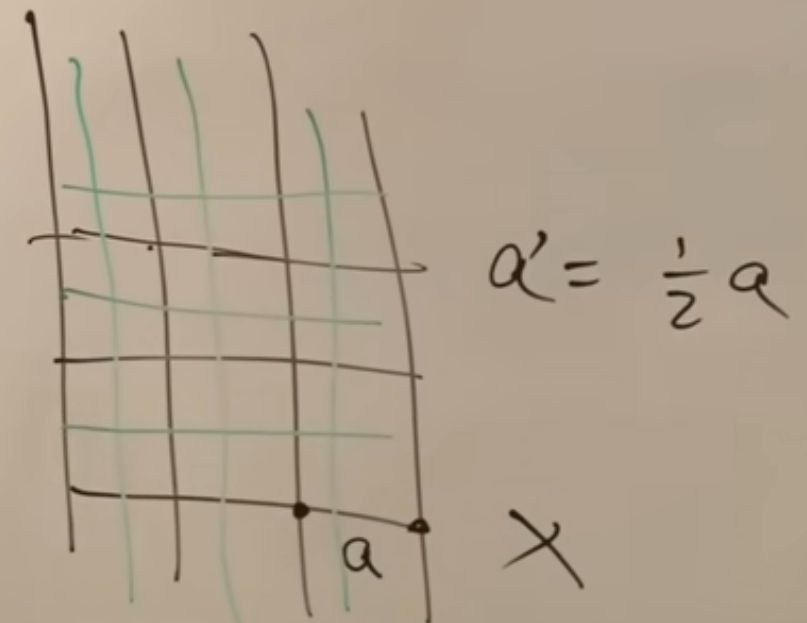 a′ = 1/2 a
a
X